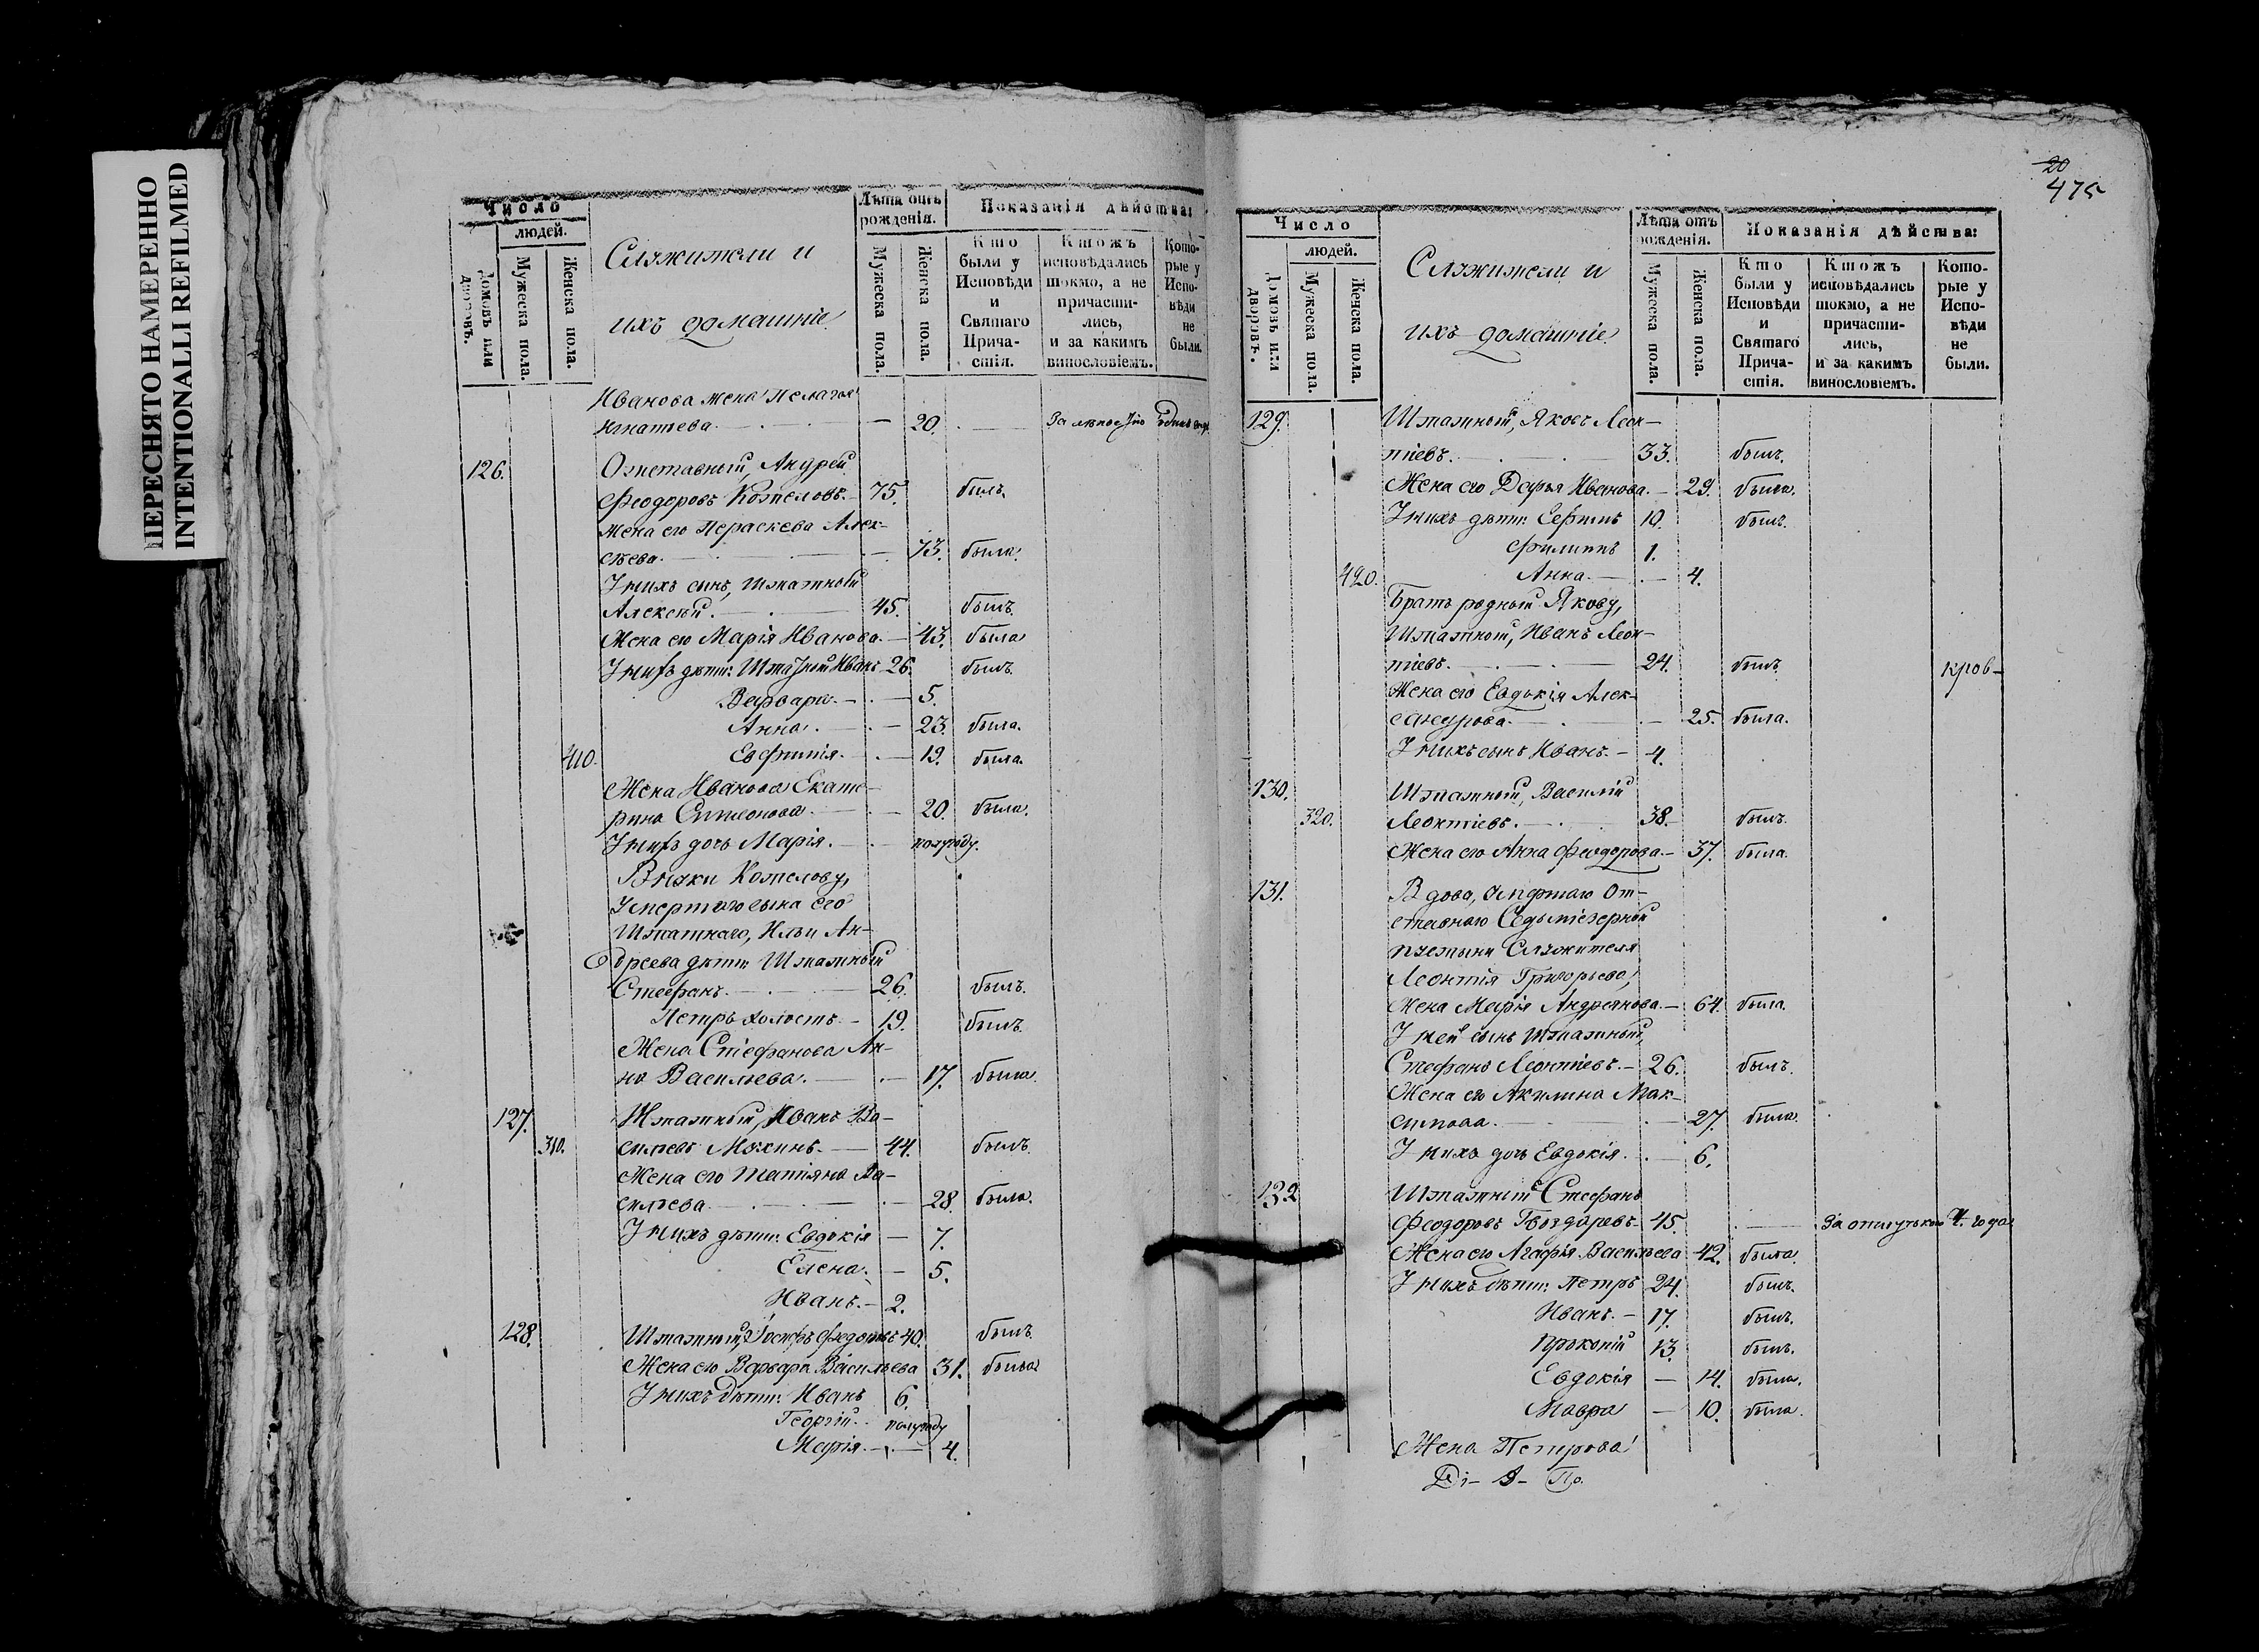 ПЕРЕСНЯТО НАМЕРЕННО
INTENTIONALLI REFILMED
Число
людей.
Домовъ или дворовъ.
Мужеска пола.
Женска пола.
Служители и
ихъ домашніе
Лѣта отъ рожденія.
Мужеска пола.
Женска пола.
Показанія дѣйства:
Кто были у Исповѣди и Святаго Причастія.
Ктожъ исповѣдались токмо, а не причастились, и за какимъ винословіемъ.
Которые у Исповѣди не были.
Иванова жена Пелагея
Игнатьева. — 20. — За лѣностію
126. Отставный, Андрей
Феодоровъ Котеловъ. — 75. былъ.
Жена его Параскева Алек-
сѣева. — 73. была.
У нихъ сынъ, Штатный
Алексѣй. — 45. былъ.
Жена его Марія Иванова. — 43. была
У нихъ дѣти: Штатный Иванъ 26. былъ.
Варвара. — 5.
Анна. — 23. была.
410. Евфимія. — 19. была.
Жена Иванова Екате-
рина Симеонова — 20. была.
У нихъ дочь Марія. — полугоду.
Внуки Котелову,
умершаго сына его
Штатнаго, Ильи Ан-
дреева дѣти: Штатный
Стефанъ. — 26. былъ.
Петръ холостъ. — 19. былъ.
Жена Стефанова Ан-
на Васильева. — 17. была.
127. Штатный, Иванъ Ва-
310. сильевъ Мухинъ. — 44. былъ.
Жена его Татіяна Ва-
сильева — 28. была.
У нихъ дѣти: Евдокія — 7.
Елена. — 5.
Иванъ. — 2.
128. Штатный, Іосифъ Федоровъ 40. былъ.
Жена его Варвара Васильева 31. была
У нихъ дѣти: Иванъ 6.
Георгій. полугоду
Марія. — 4.
20
475
Число
людей.
Домовъ или дворовъ.
Мужеска пола.
Женска пола.
Служители и
ихъ домашніе
Лѣта отъ рожденія.
Мужеска пола.
Женска пола.
Показанія дѣйства:
Кто были у Исповѣди и Святаго Причастія.
Ктожъ исповѣдались токмо, а не причастились, и за какимъ винословіемъ.
Которые у Исповѣди не были.
129. Штатный, Яковъ Леон-
тіевъ. — 33. былъ.
Жена его Дарья Иванова. — 29. была.
У нихъ дѣти: Ефимъ 10. былъ.
Филиппъ 1.
420. Анна. — 4.
Братъ родный Якову,
Штатный, Иванъ Леон-
тіевъ. — 24. былъ кров-
Жена его Евдокія Алек-
сандрова. — 25. была.
У нихъ сынъ Иванъ. — 4.
130. Штатный, Василій
320. Леонтіевъ. — 38. былъ.
Жена его Анна Феодорова. — 37. была.
131. Вдова, умершаго От-
ставнаго Седмiезерной
пустыни Служителя
Леонтія Григорьева,
Жена Марія Андреянова. — 64. была.
У ней сынъ Штатный,
Стефанъ Леонтіевъ. — 26. былъ.
Жена его Акилина Мак-
симова. — 27. была.
У нихъ дочь Евдокія. — 6.
132 Штатный Стефанъ
Феодоровъ Гвоздаревъ 45. — За отлучкою 4. года
Жена его Агафія Васильева 42. была.
У нихъ дѣти: Петръ 24. былъ.
Иванъ. — 17. былъ.
Прокопій 13. былъ.
Евдокія — 14. была.
Мавра — 10. была.
Жена Петрова
Ді- А- Пр.